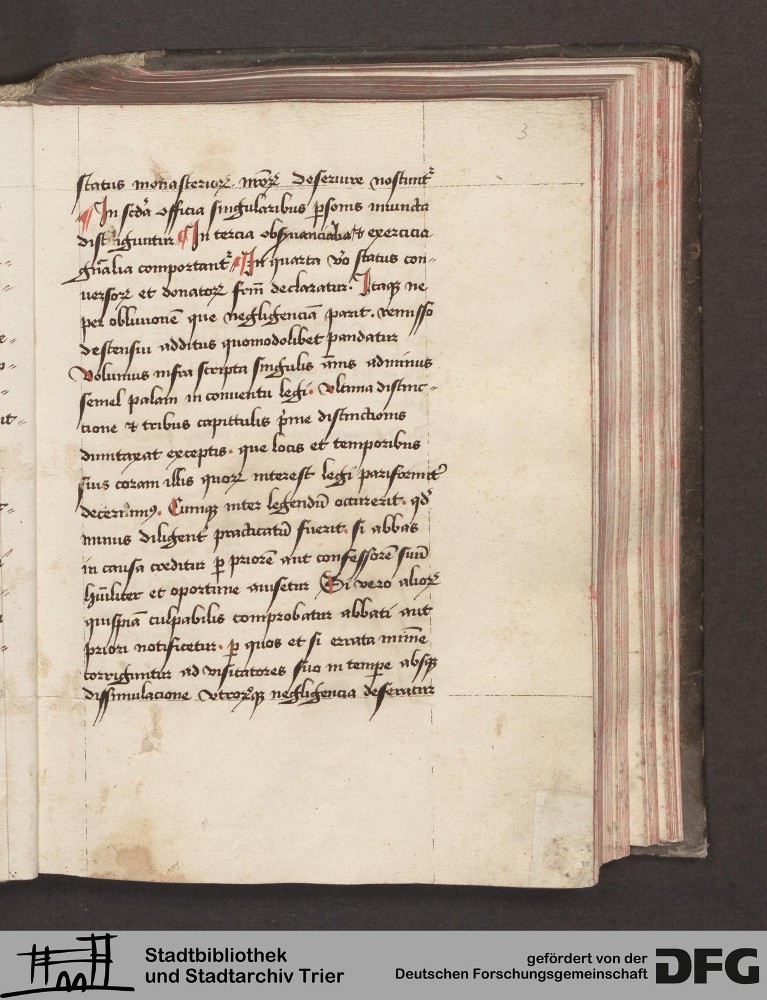 3
status monasteriorꝝ nr̄orꝝ deseruire noscunt᷑
¶ In scd̄a officia singularibus ꝑsonis iniuncta
distinguntur ¶ In tercia obseruancialia et exercicia
gn̄alia comportant᷑ ¶ In quarta v̊o status con⸗
uersorꝝ et donatorꝝ frm̄ declaratur. Itaqꝫ ne
per obliuionē que negligenciā parit. remisso
descensui additus quomodolibet pandatur
Volumus infra scripta singulis ānis adminus
semel palam in conuentu legi. vltima distinc⸗
cione et tribus capittulis p̄me distinctionis
dumtaxat exceptis. que locis et temporibus
suis coram illis quorꝝ interest legi pariformit᷑
decernimꝰ. Cumqꝫ inter legendū occurerit. qd̄
minus diligent᷑ practicatū fuerit. si abbas
in causa creditur ꝑ priorē aut confessorē suū
hūiliter et oportune auisetur Si vero aliorꝝ
quispiā culpabilis comprobatur abbati aut
priori notificetur. ꝑ quos et si errata minīe
corriguntur ad visitatores suo in tempe absqꝫ
dissimulacione vtrorꝝqꝫ negligencia deferatur
Stadtbibliothek
und Stadtarchiv Trier
gefördert von der
Deutschen Forschungsgemeinschaft
DFG